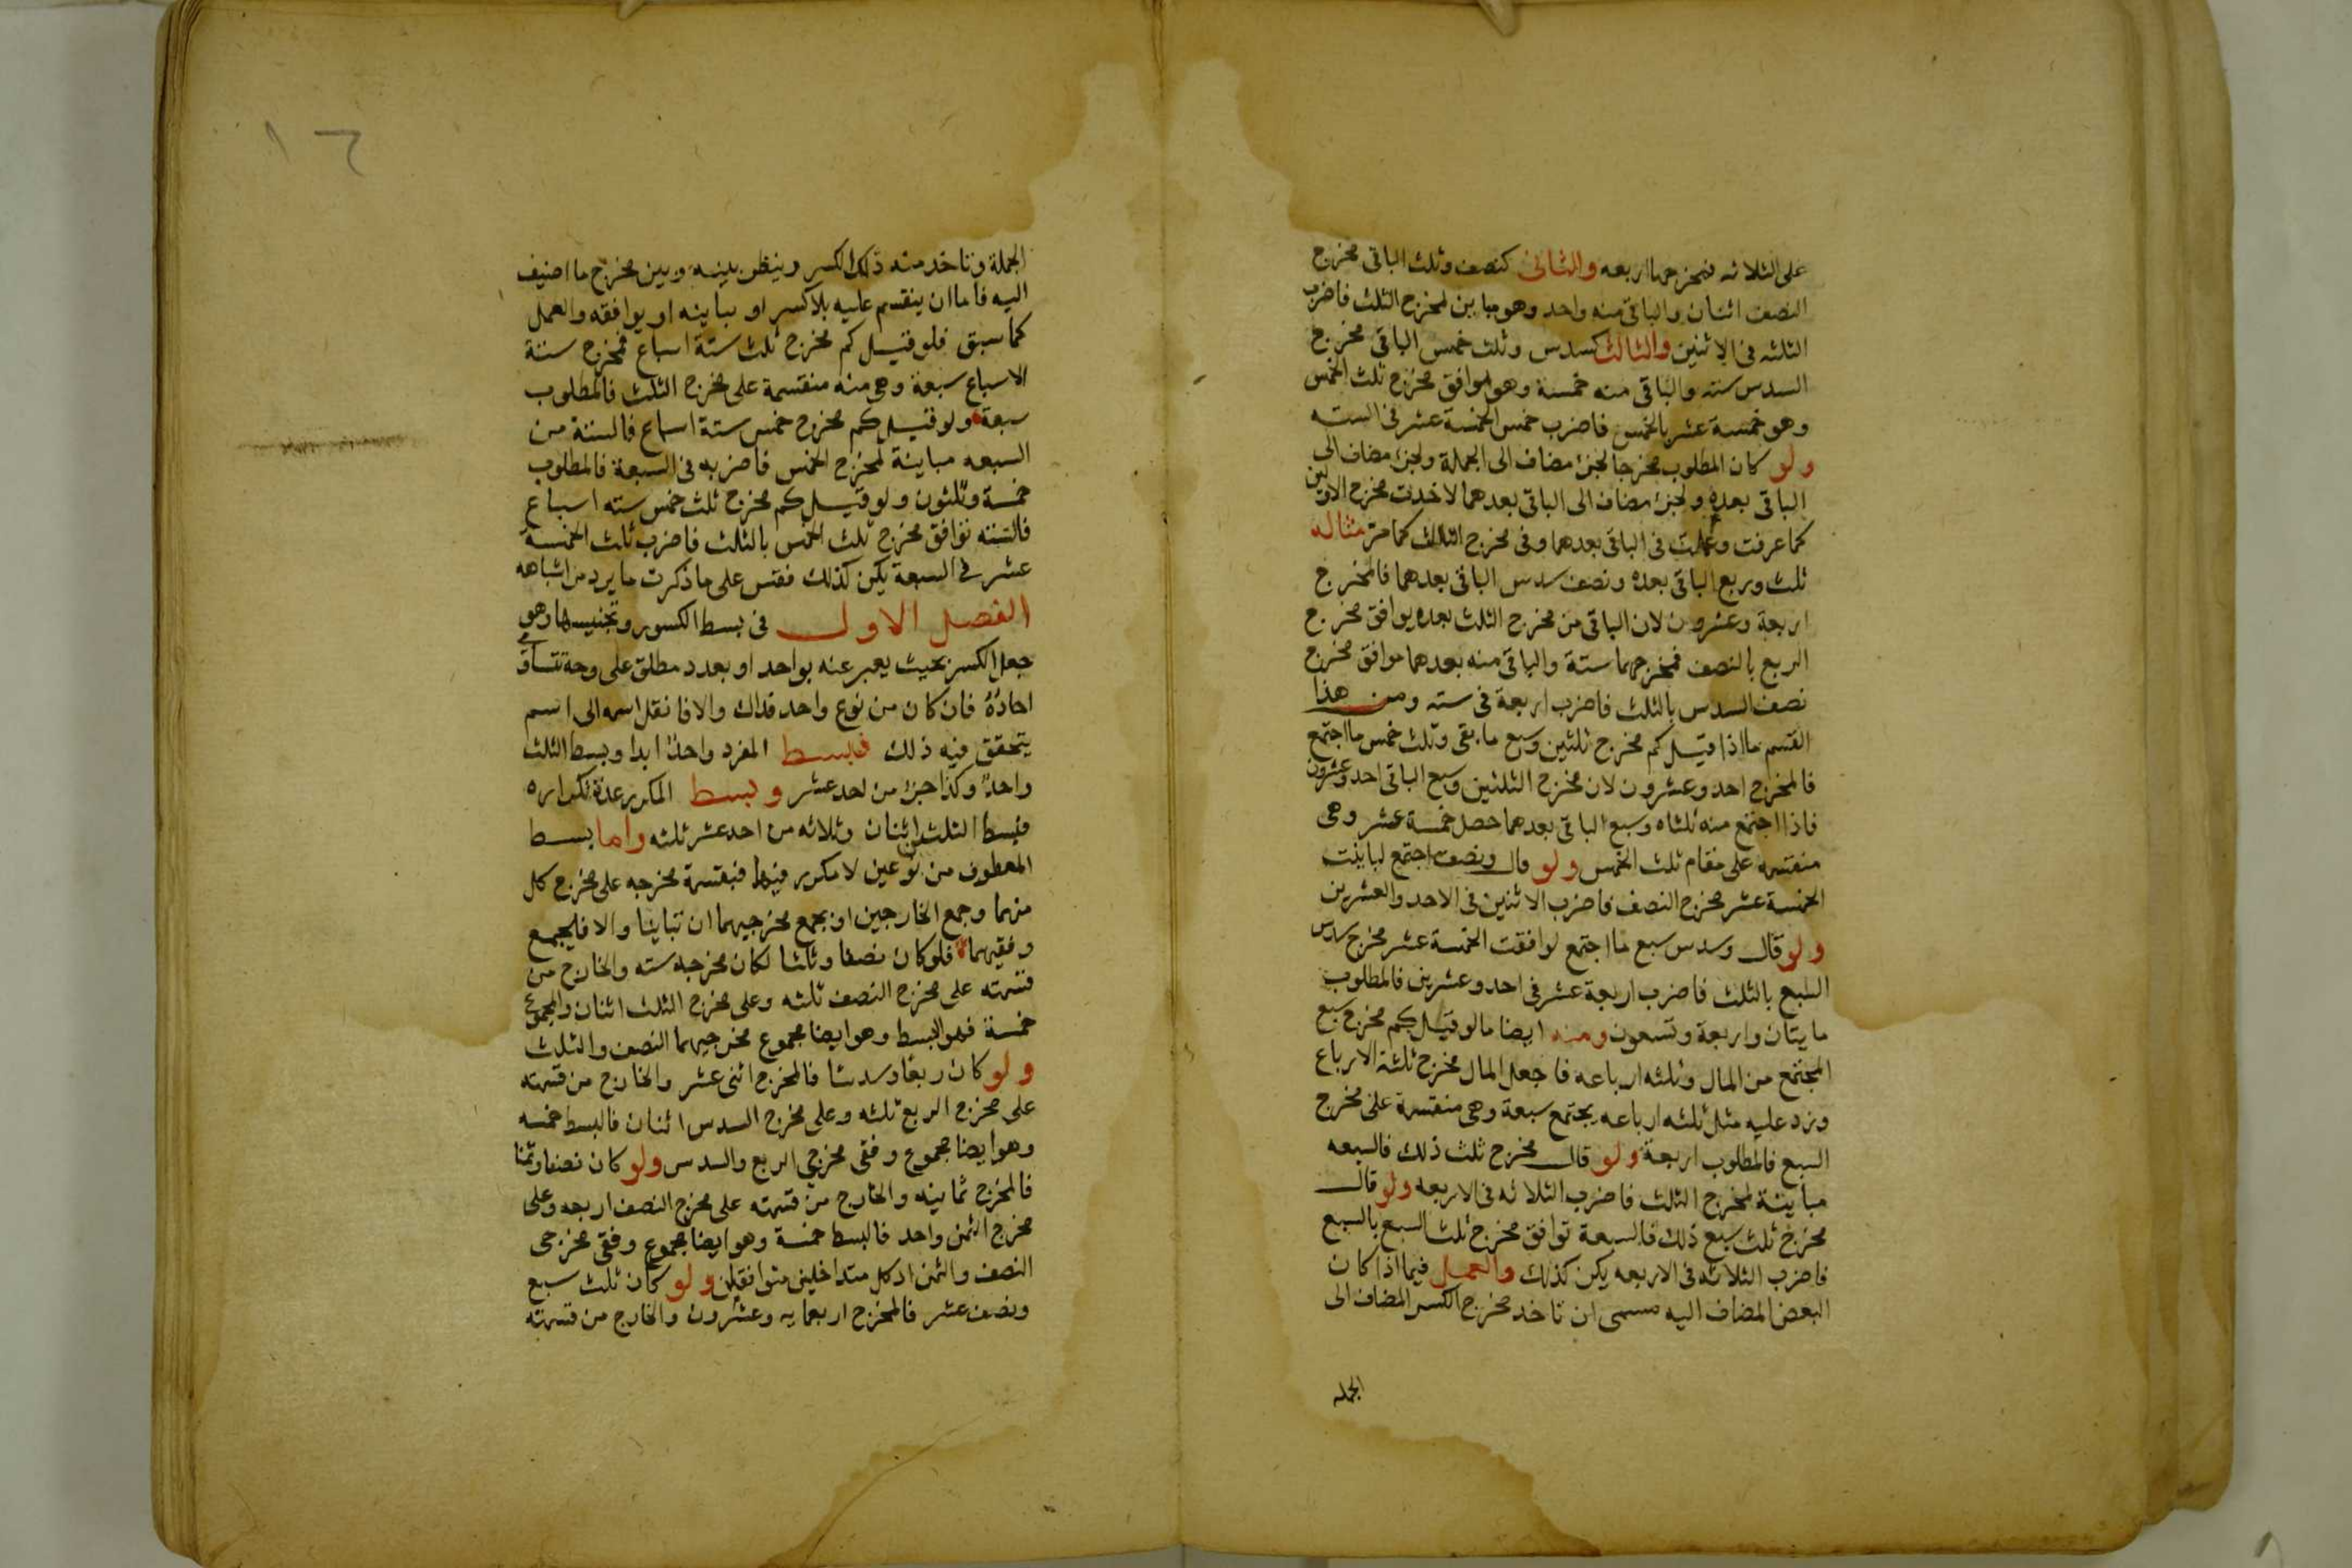 على الثلاثه فمخرجهما اربعه والثانى كنصف وثلث الباقى مخرج
النصف اثنان والباقى منه واحد وهو مباين لمخرج الثلث فاضرب
الثلثه فى الاثنين والثالث كسدس وثلث خمس الباقى مخرج
السدس سته والباقى منه خمسة وهو موافق مخرج ثلث الخمس
وهو خمسة عشر بالخمس فاضرب خمس الخمسة عشر فى السته
ولو كان المطلوب مخرجا لجزء مضاف الى الجملة ولجزء مضاف الى
الباقى بعده ولجزء مضاف الى الباقى بعدهما لاخذت مخرج الاولين
كما عرفت وعملت فى الباقى بعدهما وفى مخرج الثالث كما مر مثاله
ثلث وربع الباقى بعده ونصف سدس الباقى بعدهما فالمخرج
اربعة وعشرون لان الباقى من مخرج الثلث بعده يوافق مخرج
الربع بالنصف فمخرجهما ستة والباقى منه بعدهما موافق مخرج
نصف السدس بالثلث فاضرب اربعة فى سته ومن هذا
القسم ما اذا قيل كم مخرج ثلثين وسبع ما بقى وثلث خمس ما اجتمع
فالمخرج احد وعشرون لان مخرج الثلثين وسبع الباقى احد وعشرون
فاذا اجتمع منه ثلثاه وسبع الباقى بعدهما حصل خمسة عشر وهى
منقسمه على مقام ثلث الخمس ولو قال ونصف ما اجتمع لباينت
الخمسة عشر مخرج النصف فاضرب الاثنين فى الاحد والعشرين
ولو قال وسدس سبع ما اجتمع لوافقت الخمسة عشر مخرج سدس
السبع بالثلث فاضرب اربعة عشر فى احد وعشرين فالمطلوب
مايتان واربعة وتسعون ومنه ايضا ما لو قيل كم مخرج سبع
المجتمع من المال وثلثه ارباعه فاجعل المال مخرج ثلثة الارباع
وزد عليه مثل ثلثه ارباعه يجتمع سبعة وهى منقسمة على مخرج
السبع فالمطلوب اربعة ولو قال مخرج ثلث ذلك فالسبعه
مباينة لمخرج الثلث فاضرب الثلاثه فى الاربعه ولو قال
مخرج ثلث سبع ذلك فالسبعة توافق مخرج ثلث السبع بالسبع
فاضرب الثلاثه فى الاربعه يكن كذلك والعمل فيما اذا كان
البعض المضاف اليه مسمى ان تاخذ مخرج الكسر المضاف الى
الجمله
١٦
الجملة وتاخذ منه ذلك الكسر وينظر بينه وبين مخرج ما اضيف
اليه فاما ان ينقسم عليه بلا كسر او يباينه او يوافقه والعمل
كما سبق فلو قيل كم مخرج ثلث ستة اسباع فمخرج ستة
الاسباع سبعة وهى منه منقسمة على مخرج الثلث فالمطلوب
سبعة ولو قيل كم مخرج خمس ستة اسباع فالستة من
السبعه مباينة لمخرج الخمس فاضربه فى السبعة فالمطلوب
خمسة وثلثون ولو قيل كم مخرج ثلث خمس سته اسباع
فالسته توافق مخرج ثلث الخمس بالثلث فاضرب ثلث الخمسة
عشر فى السبعة يكن كذلك فقس على ما ذكرت ما يرد من اشباهه
الفصل الاول فى بسط الكسور وتجنيسها وهو
جعل الكسر بحيث يعبر عنه بواحد او بعدد مطلق على وجه تتساوى
احاده فان كان من نوع واحد فذاك والا فانقل اسمه الى اسم
يتحقق فيه ذلك فبسط المفرد واحد ابدا وبسط الثلث
واحد وكذا جزء من احد عشر وبسط المكرر عدة تكراره
فبسط الثلثين اثنان وثلاثه من احد عشر ثلثه واما بسط
المعطوف من نوعين لا مكرر فيهما فبقسمة مخرجه على مخرج كل
منهما وجمع الخارجين او بجمع مخرجيهما ان تباينا والا فليجمع
وفقيهما فلو كان نصفا وثلثا لكان مخرجه سته والخارج من
قسمته على مخرج النصف ثلثه وعلى مخرج الثلث اثنان والمجموع
خمسة فهو البسط وهو ايضا مجموع مخرجيهما النصف والثلث
ولو كان ربعا وسدسا فالمخرج اثنى عشر والخارج من قسمته
على مخرج الربع ثلثه وعلى مخرج السدس اثنان فالبسط خمسه
وهو ايضا مجموع وفقى مخرجى الربع والسدس ولو كان نصفا وثمنا
فالمخرج ثمانيه والخارج من قسمته على مخرج النصف اربعه وعلى
مخرج الثمن واحد فالبسط خمسة وهو ايضا مجموع وفقى مخرجى
النصف والثمن اذ كل متداخلين متوافقان ولو كان ثلث سبع
ونصف عشر فالمخرج اربعمايه وعشرون والخارج من قسمته